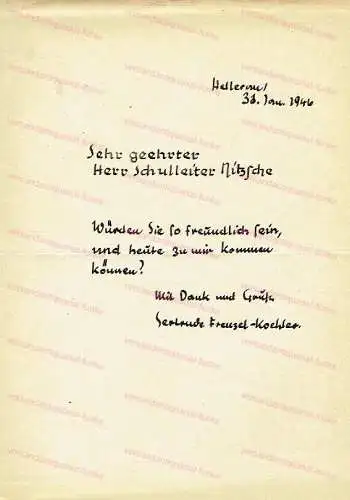 Hellerau,
31. Jan. 1946
Sehr geehrter
Herr Schulleiter Nitzsche
Würden Sie so freundlich sein,
und heute zu mir kommen
können?
Mit Dank und Gruß
Gertrude Frenzel-Kochler.